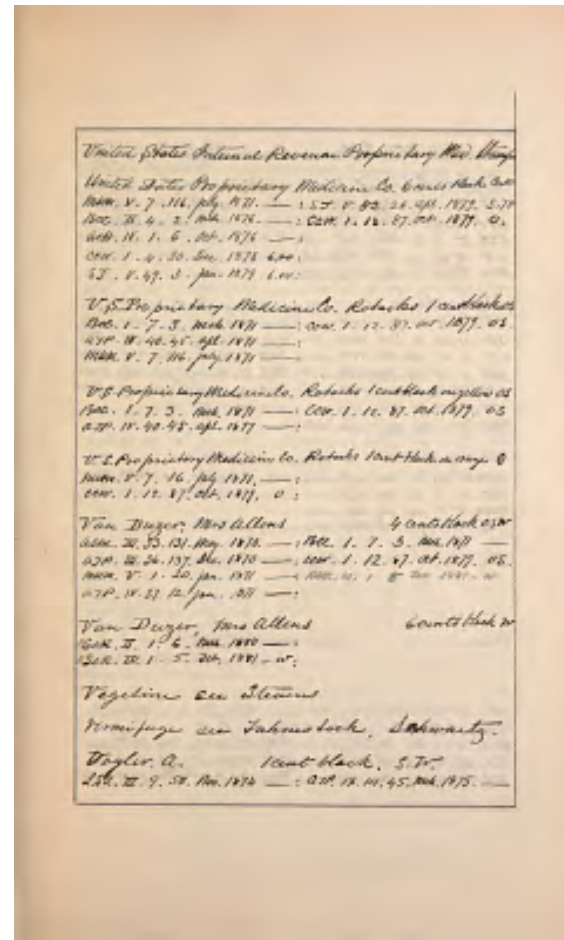 United States Internal Revenue Proprietary Med. Stamps
United States Proprietary Medicine Co. 6 cents black
MMM. V. 7. 116. july. 1871. — : S.J. V. 82. 26. apl. 1879. S.
Bec. IV. 4. 2. mch. 1876. — : cow. 1. 12. 87. oct. 1879. O.
IV. 1. 6. oct. 1876 — :
cow. 1. 4. 30. Dec. 1878 6.00:
S.J. V. 49. 3. jan. 1879 6.00:
U.S. Proprietary Medicine Co. Robacks 1 cent black
Bec. 1. 7. 3. mch. 1871 — : cow. 1. 12. 87. oct. 1879. OS
AJP. IV. 40. 45. apl. 1871 — :
MMM. V. 7. 116. july. 1871 — :
U.S. Proprietary Medicine Co. Robacks 1 cent black on yellow OS
Bec. 1. 7. 3. mch. 1871 — : cow. 1. 12. 87. oct. 1879. OS
AJP. IV. 40. 45. apl. 1877 — :
U.S. Proprietary Medicine Co. Robacks 1 cent black on orange O
MMM. V. 7. 16. july 1871. — :
cow. 1. 12. 87. oct. 1879. O :
Van Duzer, Mrs Allens 4 cents black OSW
III. 33. 131. May. 1870. — : Bec. 1. 7. 3. mch. 1871 —
AJP. III. 36. 137. Dec. 1870 — : cow. 1. 12. 87. oct. 1879. OS.
MMM. V. 1. 20. jan. 1871 — 1881 - W
AJP. IV. 37. 12. jan. 1871 — :
Van Duzer, Mrs Allens 6 cents black W
II. 1. 6. 1880 — :
IV. 1. 5. 1881 - W :
Vegetine see Stevens
Vermifuge see Fahnestock, Schwartz.
Vogler. A. 1 cent black. S.W.
III. 9. 50. Nov. 1874 — : AJP. IX. 45. mch. 1875. —